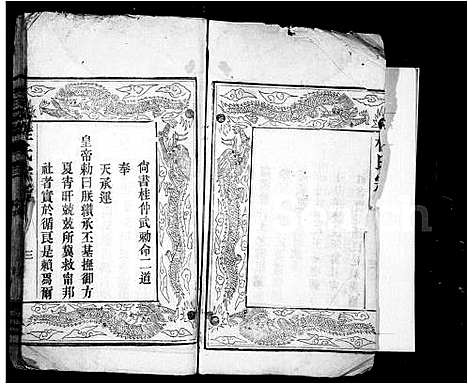 尙書桂仲武勅命二道
奉
天承運
皇帝勅曰朕纘承丕基撫御方
夏宵旰兢兢所冀救甯邦
社者實於循良是賴爾
三